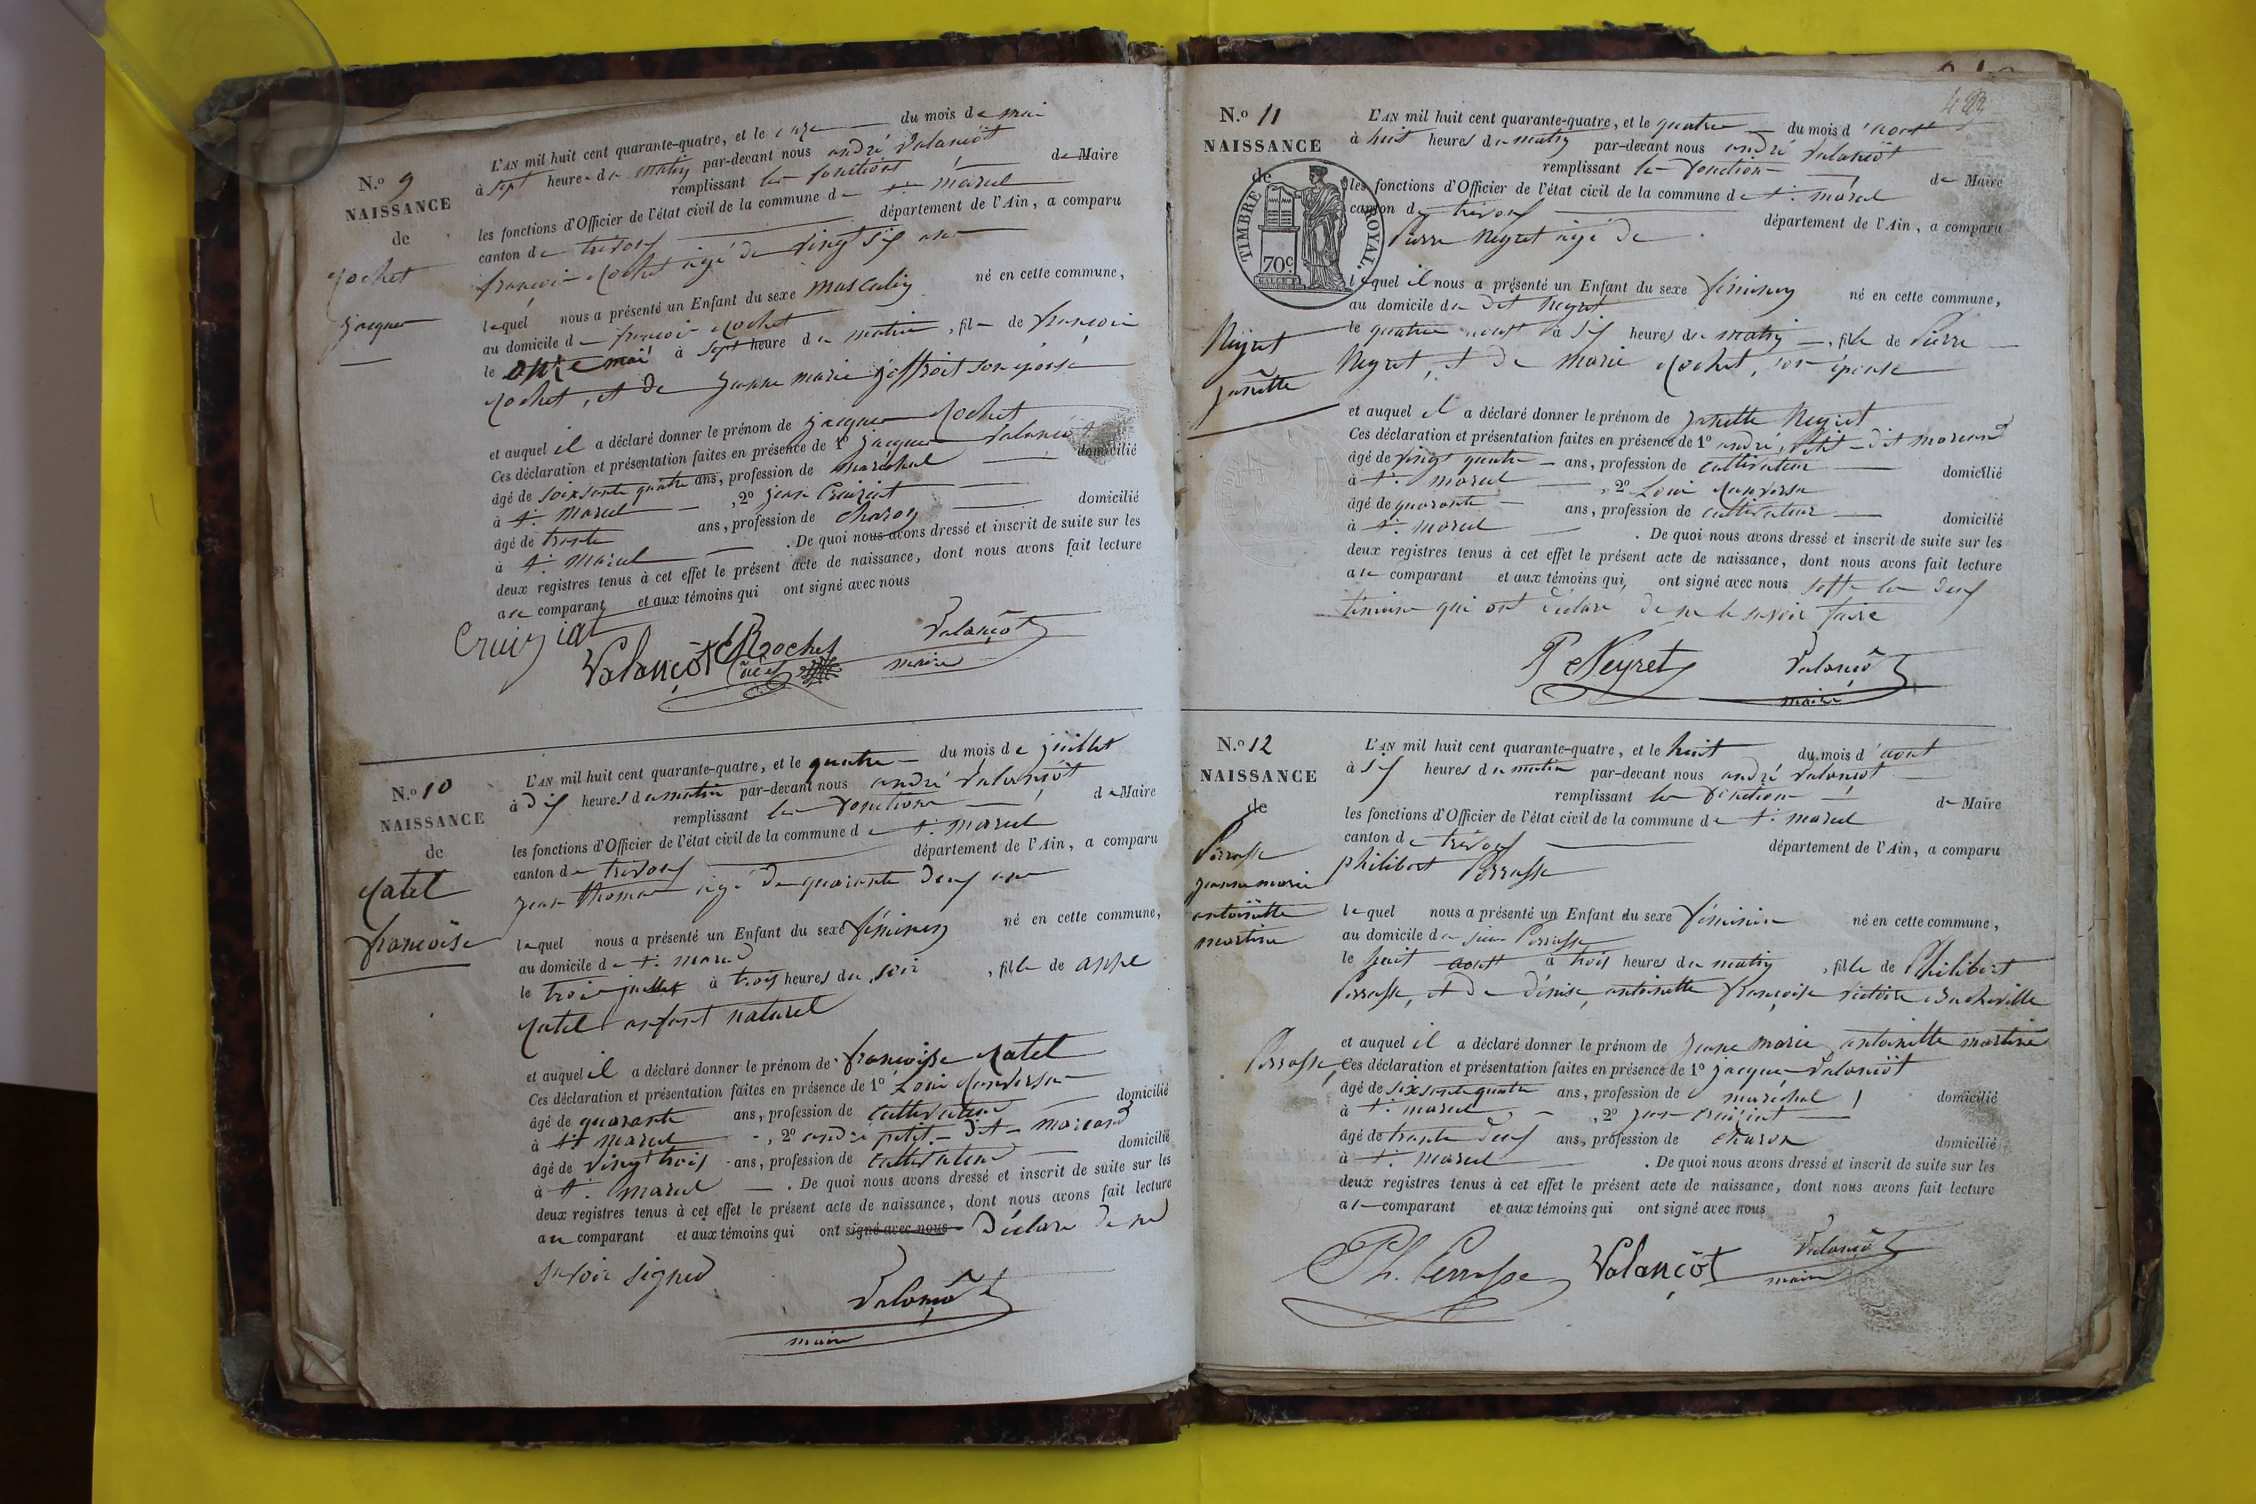 N.º 9
NAISSANCE
de
Rochet
Jacques
L'AN mil huit cent quarante-quatre, et le onze du mois de mai
à sept heures du matin par-devant nous andré Valançot
remplissant les fonctions de Maire
les fonctions d'Officier de l'état civil de la commune de st. marcel
canton de trevoux département de l'Ain, a comparu
françois Rochet agé de vingt six ans
lequel nous a présenté un Enfant du sexe masculin né en cette commune,
au domicile de françois Rochet
le onze mai à sept heure du matin, fils de françois
Rochet, et de jeanne marie joffroit son épouse
et auquel il a déclaré donner le prénom de jacques Rochet
Ces déclaration et présentation faites en présence de 1º jacques Valançot
âgé de soixsante quatre ans, profession de maréchal domicilié
à st. marcel, 2º jean Cruiziat
âgé de trente ans, profession de charon domicilié
à st. marcel. De quoi nous avons dressé et inscrit de suite sur les
deux registres tenus à cet effet le présent acte de naissance, dont nous avons fait lecture
au comparant et aux témoins qui ont signé avec nous
Cruiziat Valançot Rochet Valançot
maire
N.º 10
NAISSANCE
de
Catel
françoise
L'AN mil huit cent quarante-quatre, et le quatre du mois de juillet
à dix heures du matin par-devant nous andré Valançot
remplissant les fonctions de Maire
les fonctions d'Officier de l'état civil de la commune de st. marcel
canton de trevoux département de l'Ain, a comparu
jean thomas agé de quarante deux ans
lequel nous a présenté un Enfant du sexe féminin né en cette commune,
au domicile de st. marcel
le trois juillet à trois heures du soir, fille de anne
Catel enfant naturel
et auquel il a déclaré donner le prénom de françoise Catel
Ces déclaration et présentation faites en présence de 1º Louis Conversa
âgé de quarante ans, profession de cultivateur domicilié
à st marcel, 2º andré petit-dit-marcand
âgé de vingt trois ans, profession de cultivateur domicilié
à st. marcel. De quoi nous avons dressé et inscrit de suite sur les
deux registres tenus à cet effet le présent acte de naissance, dont nous avons fait lecture
au comparant et aux témoins qui ont signé avec nous déclaré de ne
savoir signer
Valançot
maire
N.º 11
NAISSANCE
de
TIMBRE ROYAL.
70c.
Neyret
janette
L'AN mil huit cent quarante-quatre, et le quatre du mois d'aout
à huit heures du matin par-devant nous andré Valançot
remplissant les fonction de Maire
les fonctions d'Officier de l'état civil de la commune de st. marcel
canton de trevoux département de l'Ain, a comparu
Pierre Neyret agé de
lequel il nous a présenté un Enfant du sexe féminin né en cette commune,
au domicile du dit Neyret
le quatre aout à six heures du matin, fille de Pierre
Neyret, et de marie Rochet, son épouse
et auquel il a déclaré donner le prénom de janette Neyret
Ces déclaration et présentation faites en présence de 1º andré, petit-dit marcand
âgé de vingt quatre ans, profession de cultivateur domicilié
à st. marcel, 2º Louis Conversa
âgé de quarante ans, profession de cultivateur domicilié
à st. marcel. De quoi nous avons dressé et inscrit de suite sur les
deux registres tenus à cet effet le présent acte de naissance, dont nous avons fait lecture
au comparant et aux témoins qui, ont signé avec nous les deux
témoins qui ont déclaré de ne le savoir faire
P Neyret Valançot
maire
N.º 12
NAISSANCE
de
Perrasse
jeanne marie
antoinette
martine
L'AN mil huit cent quarante-quatre, et le huit du mois d'aout
à six heures du matin par-devant nous andré Valançot
remplissant les fonction de Maire
les fonctions d'Officier de l'état civil de la commune de st. marcel
canton de trévoux département de l'Ain, a comparu
philibert Perrasse
lequel nous a présenté un Enfant du sexe féminin né en cette commune,
au domicile du sieur Perrasse
le huit aout à trois heures du matin, fille de Philibert
Perrasse, et de dénise, antoinette françoise victoire Bacheville
et auquel il a déclaré donner le prénom de jeanne marie antoinette martine
Perrasse, Ces déclaration et présentation faites en présence de 1º jacques Valançot
âgé de soixsante quatre ans, profession de maréchal domicilié
à st. marcel, 2º jean cruiziat
âgé de trente deux ans, profession de charon domicilié
à st. marcel. De quoi nous avons dressé et inscrit de suite sur les
deux registres tenus à cet effet le présent acte de naissance, dont nous avons fait lecture
au comparant et aux témoins qui ont signé avec nous
Ph. Perrasse Valançot Valançot
maire